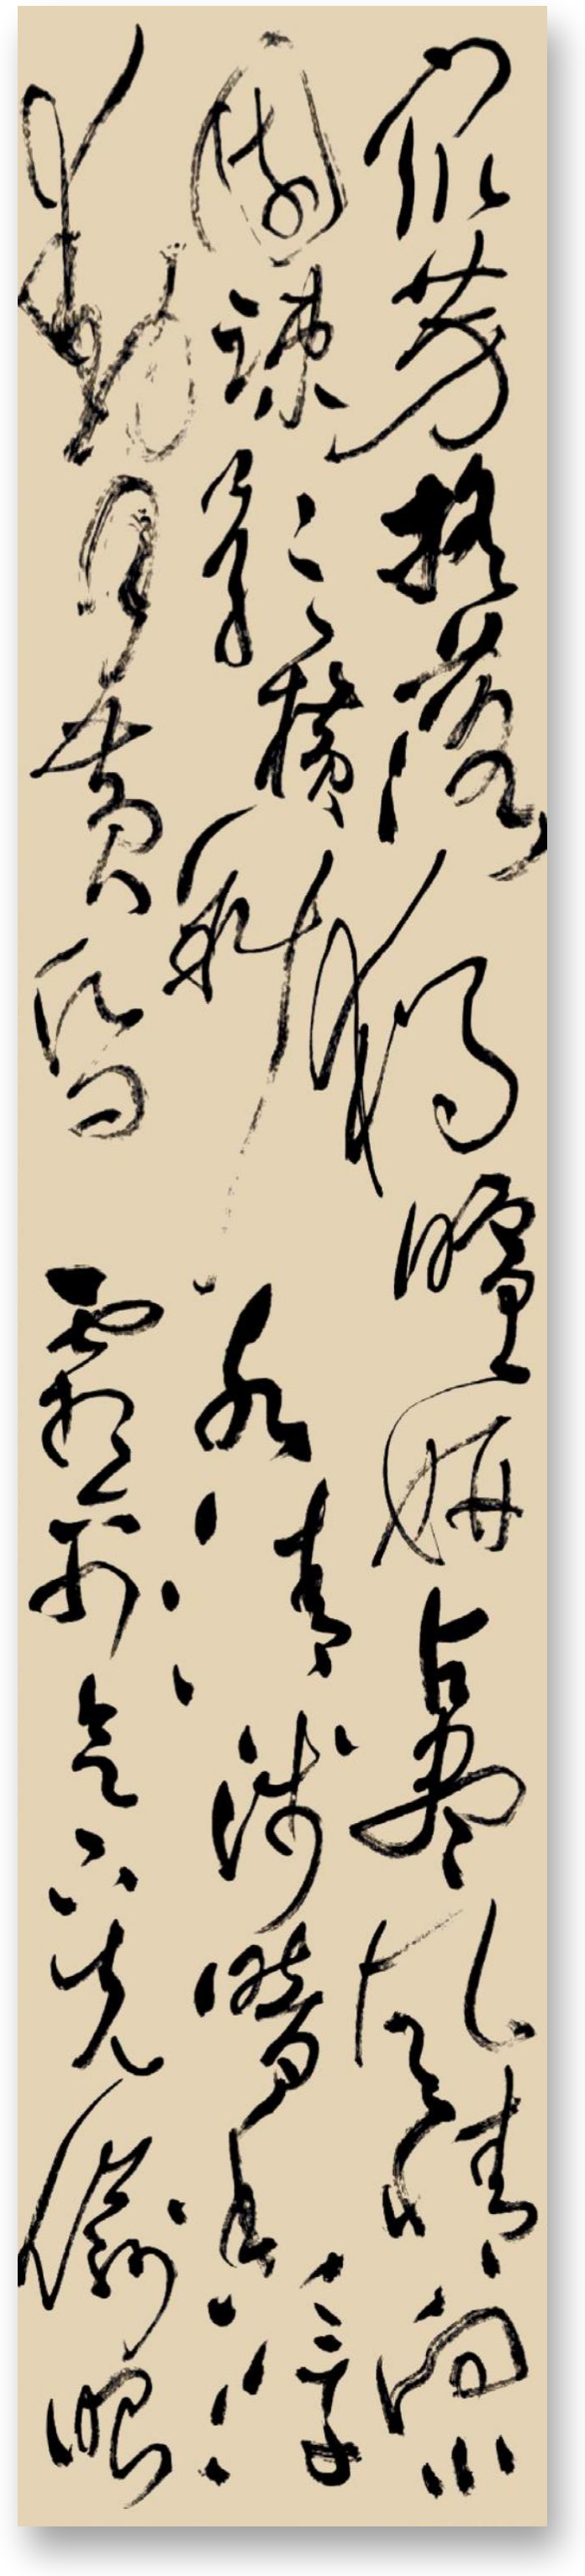 众芳摇落独暄妍占尽风情向小
园疏影横斜水清浅暗香浮
动月黄昏霜禽欲下先偷眼